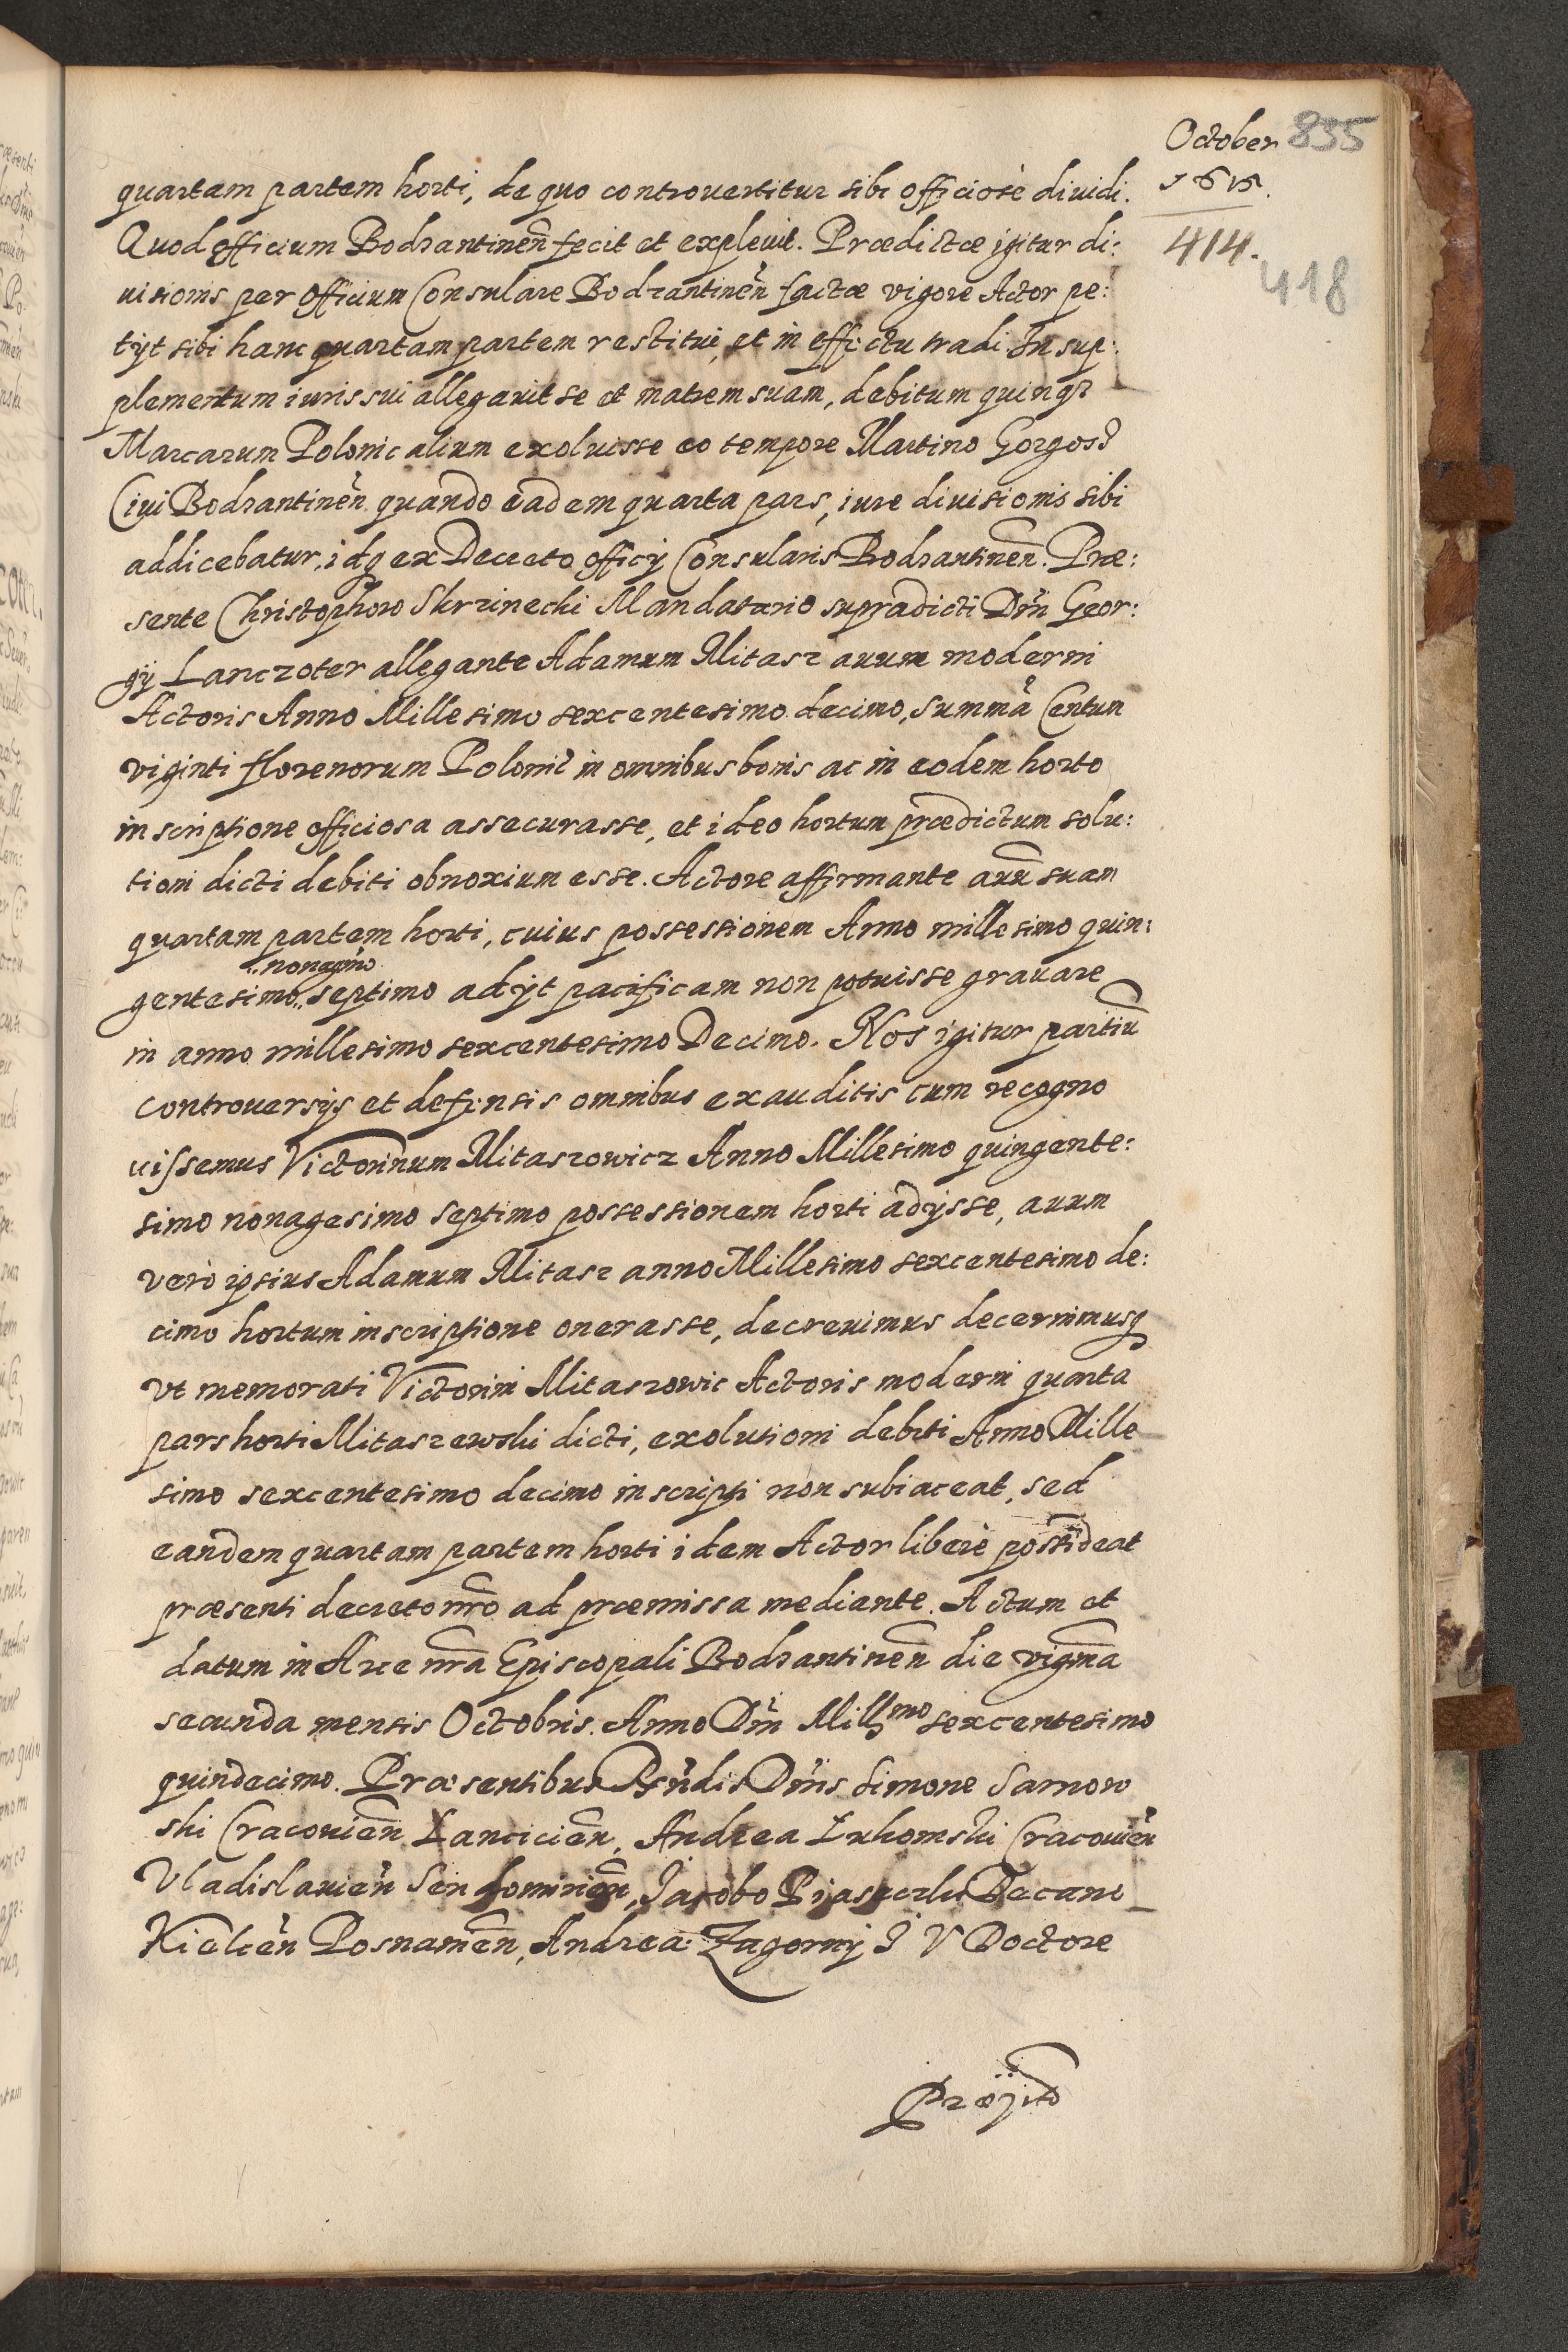 October 835
1615.
414.
418
quartam partem horti, de quo controuertitur sibi officiosè diuidi.
Quod officium Bodzantinen̄ fecit et expleuit. Prædictæ igitur di:
uisionis per officium Consulare Bodzantinen̄ factæ vigore Actor pe:
tÿt sibi hanc quartam partem restitui, et in effectu tradi. In sup:
plementum iuris sui allegauit se et matrem suam, debitum quinq3
Marcarum Polonicalium exoluisse eo tempore Martino Gorgos
Ciui Bodzantinen̄ quando eadem quarta pars, iure diuisionis sibi
addicebatur, idq ex Decreto officÿ Consularis Bodzantinen̄. Præ:
sente Christophoro Skrzinecki Mandatario supradicti Dn̄i Geor:
gÿ Lanczoter allegante Adamum Mitasz auum moderni
Actoris Anno Millesimo sexcentesimo decimo, summā Centum
viginti florenorum Poloni in omnibus bonis ac in eodem horto
inscriptione officiosa assecurasse, et ideo hortum prædictum solu:
tioni dicti debiti obnoxium esse. Actore affirmante auū suam
quartam partem horti, cuius possessionem Anno millesimo quin:
nonagm̄o
gentesimo septimo adÿt pacificam non potuisse grauare
in anno millesimo sexcentesimo Decimo. Nos igitur partiū
controuersÿs et defensis omnibus exauditis cum recogno
uissemus Victorinum Mitaszowicz Anno Millesimo quingente:
simo nonagesimo septimo possessionem horti adÿsse, auum
verò ipsius Adamum Mitasz anno Millesimo sexcentesimo de:
cimo hortum inscriptione onerasse, decreuimus decernimusq
vt memorati Victorini Mitaszowic Actoris moderni quarta
pars horti Mitaszewski dicti, exolutioni debiti Anno Mille
simo sexcentesimo decimo inscripti non subiaceat, sed
eandem quartam partem horti idem Actor liberè possideat
præsenti decreto nr̄o ad præmissa mediante. Actum et
datum in Arce nr̄a Episcopali Bodzantinen̄ die vigm̄a
secunda mensis Octobris. Anno Dn̄i Mill̄mo sexcentesimo
quindecimo. Præsentibus Rn̄dis Dn̄is Simone Sarnow
ski Cracouien̄ Lancicien̄, Andrea Lukomski Cracouien̄
Vladislauien̄ Sendomirien̄, Jacobo Piaseczki Decano
Kielcen̄ Posnanien̄, Andrea Zagorny J V Doctore